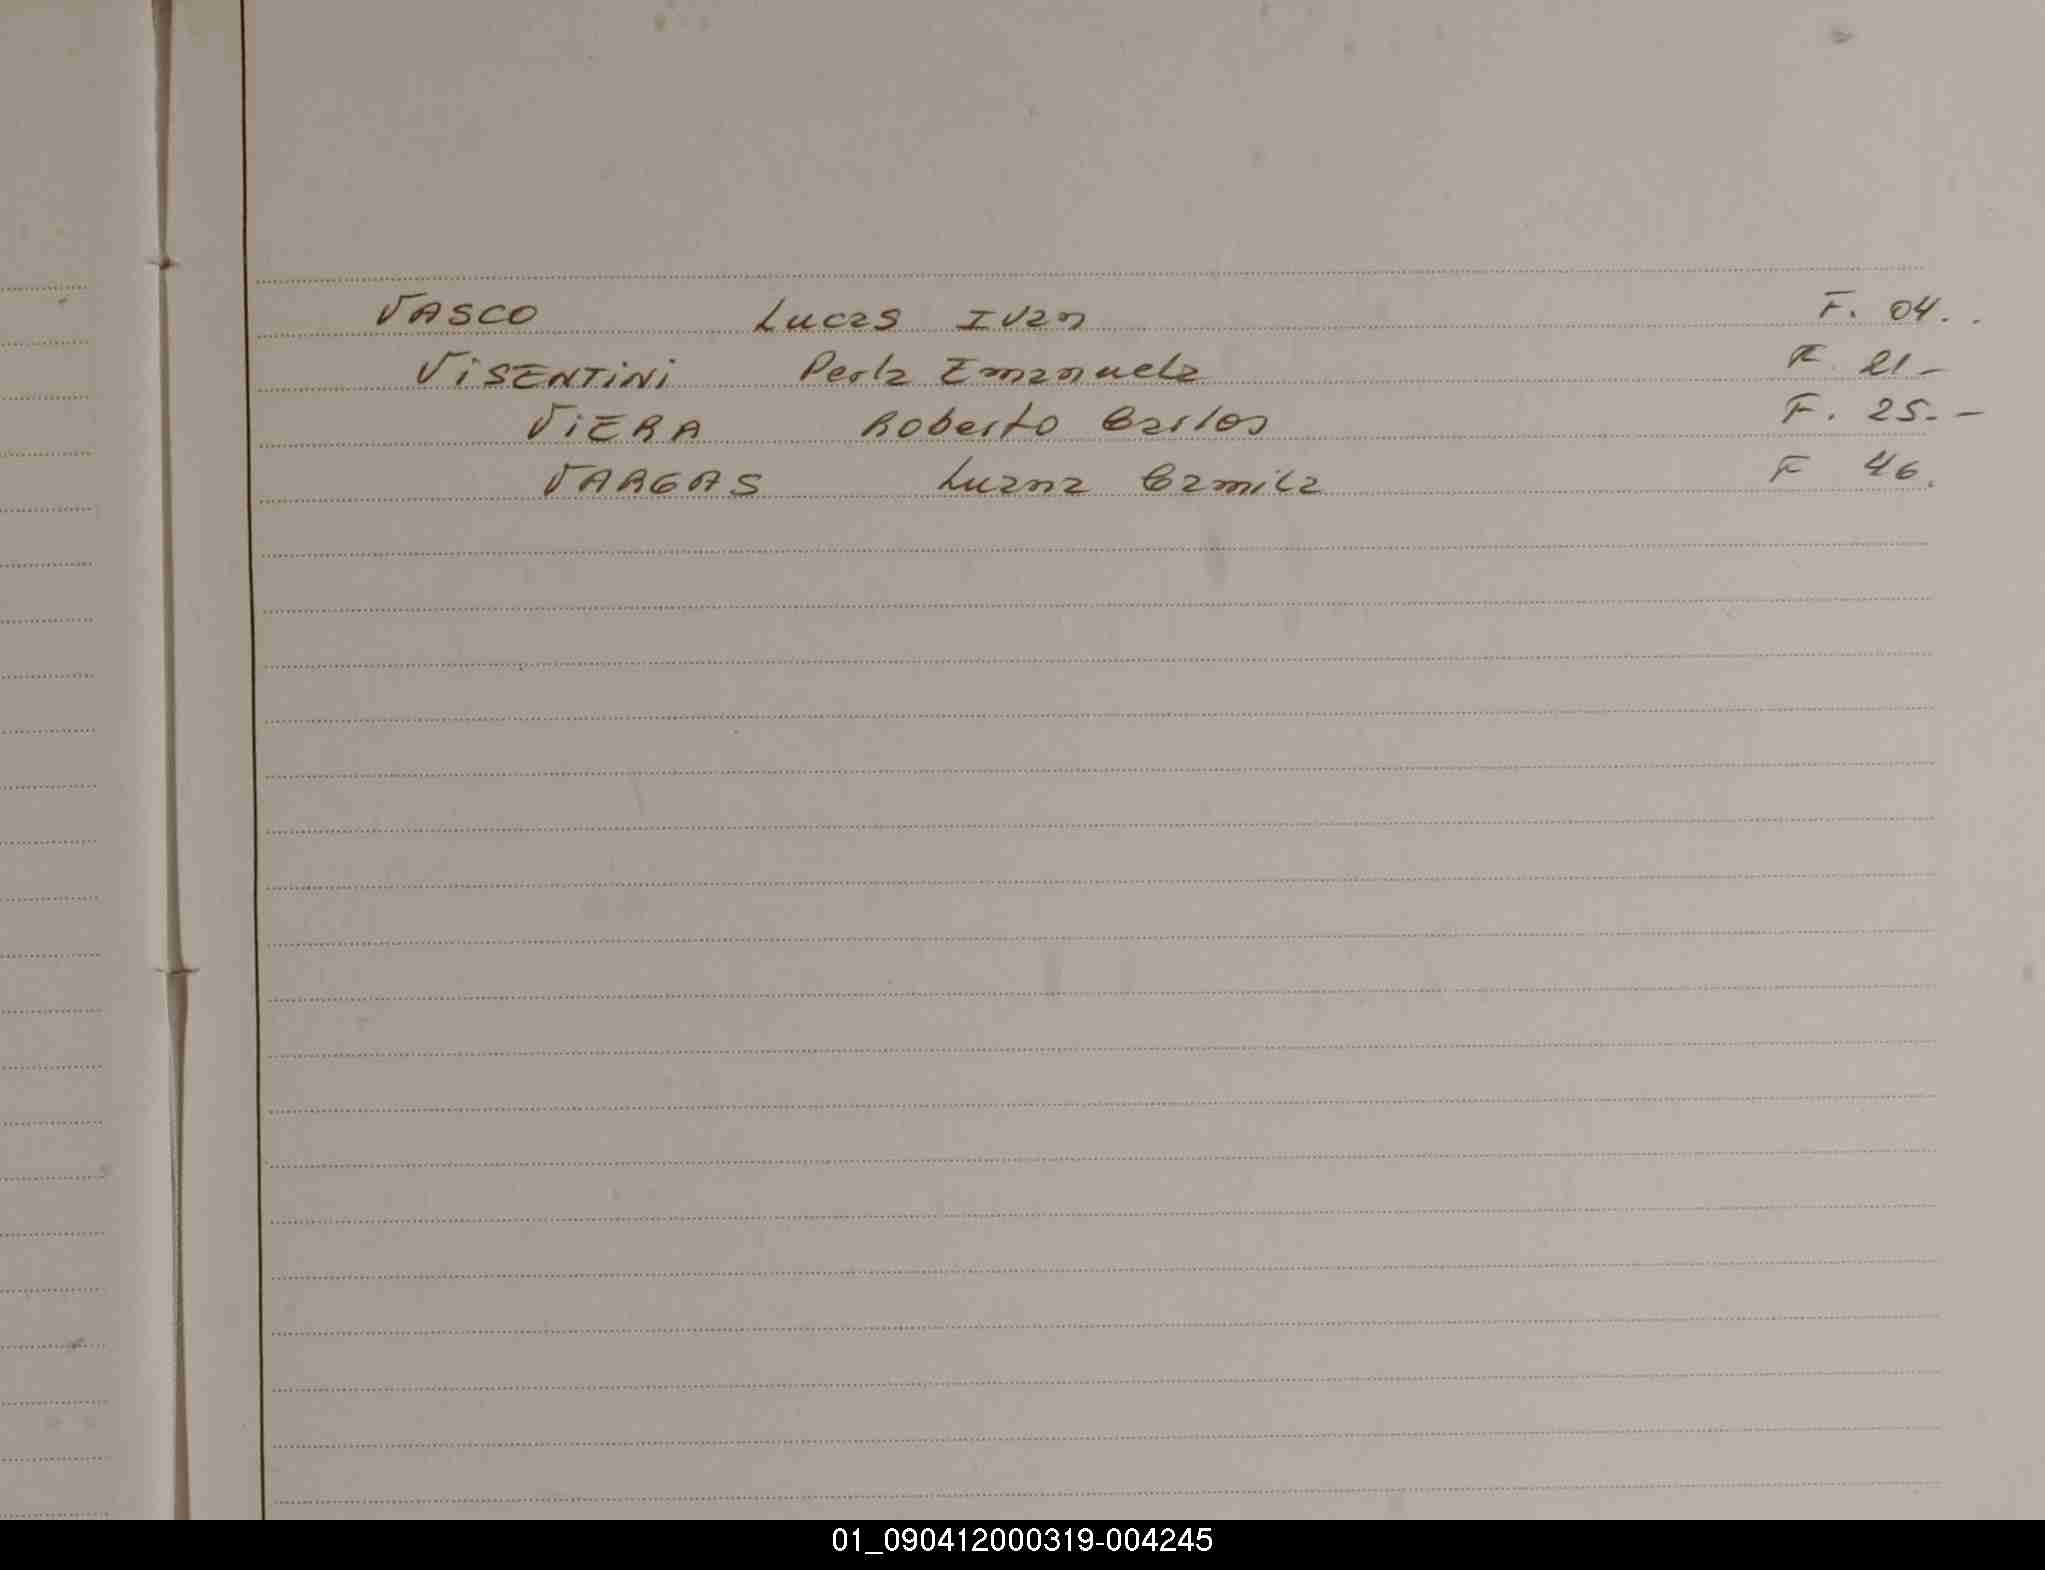 VASCO Lucas Ivan F. 04. .
ViSENTiNi Perla Emanuela F. 21 -
ViERA Roberto Carlos F. 25. -
VARGAS Luana Camila F 46.
01_090412000319-004245